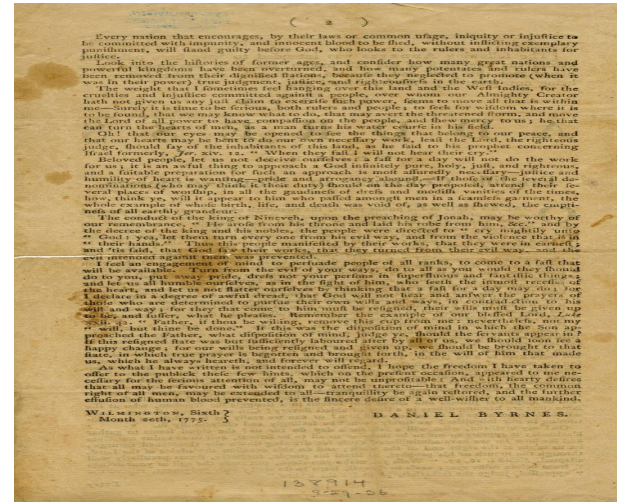 ( 2 )
Every nation that encourages, by their laws or common usage, iniquity or injustice to
be committed with impunity, and innocent blood to be shed, without inflicting exemplary
punishment, will stand guilty before God, who looks to the rulers and inhabitants for
justice.
Look into the histories of former ages, and consider how many great nations and
powerful kingdoms have been overturned, and how many potentates and rulers have
been removed from their dignified stations, because they neglected to promote (when it
was in their power) true judgment, justice, and righteousness in the earth.
The weight that I sometimes feel hanging over this land and the West Indies, for the
cruelties and injustice committed against a people, over whom our Almighty Creator
hath not given us any just claim to exercise such power, seems to move all that is within
me—Surely it is time to be serious, both rulers and people; to seek for wisdom where it is
to be found, that we may know what to do, that may avert the threatened storm, and move
the Lord of all power to have compassion on the people, and shew mercy to us; he that
can turn the hearts of men, as a man turns his water course in his field.
Oh! that our eyes may be opened to see the things that belong to our peace, and
that our hearts may be bent to do our own necessary business, lest the Lord, the righteous
judge, should say of the inhabitants of this land, as he said to his prophet concerning
Israel formerly, Jer. xiv. 12. " When they fast I will not hear their cry."
Beloved people, let us not deceive ourselves: a fast for a day will not do the work
for us; it is an awful thing to approach a God infinitely pure, holy, just, and righteous,
and a suitable preparation for such an approach is most assuredly necessary—justice and
humility of heart is wanting—pride and arrogancy abound—If those of the several de-
nominations (who may think it their duty) should on the day proposed, attend their se-
veral places of worship, in all the gaudiness of dress and modish vanities of the times,
how, think ye, will it appear to him who passed amongst men in a seamless garment, the
whole example of whose birth, life, and death was void of, as well as shewed, the empti-
ness of all earthly grandeur.
The conduct of the king of Nineveh, upon the preaching of Jonah, may be worthy of
our remembrance, " He arose from his throne and laid his robe from him, &c." and by
the decree of the king and his nobles, the people were directed to " cry mightily unto
" God; yea, let them turn every one from his evil way, and from the violence that is in
" their hands." Thus this people manifested by their works, that they were in earnest,
and 'tis said, that God saw their works, that they turned from their evil way, and the
evil intended against them was prevented.
I feel an engagement of mind to persuade people of all ranks, to come to a fast that
will be available. Turn from the evil of your ways, do to all as you would they should
do to you, put away pride, dress not your persons in superfluous and fantastic things;
and let us all humble ourselves, as in the sight of him, who seeth the inmost recesses of
the heart, and let us not flatter ourselves by thinking that a fast for a day may do; for
I declare in a degree of awful dread, that God will not hear and answer the prayers of
those who are determined to pursue their own wills and ways, in contradiction to his
will and way; for they that come to him must be resigned, their wills must be given up
to do, and suffer, what he pleases. Remember the example of our blessed Lord, Luke
xxii. 42. " Father, if thou be willing, remove this cup from me: nevertheless, not my
" will, but thine be done." If this was the disposition of mind in which the Son ap-
proached the Father, what disposition of mind, judge ye, should the servants appear in?
If this resigned state was but sufficiently laboured after by all of us, we should soon see a
happy change; for our wills being resigned and given up, we should be brought to that
state, in which true prayer is begotten and brought forth, in the will of him that made
us, which he always heareth, and forever will regard.
As what I have written is not intended to offend, I hope the freedom I have taken to
offer to the publick these few hints, which on the present occasion, appeared to me ne-
cessary for the serious attention of all, may not be unprofitable: And with hearty desires
that all may be favoured with wisdom to attend thereto—that freedom, the common
right of all men, may be extended to all—tranquility be again restored, and the further
effusion of human blood prevented, is the sincere desire of a well-wisher to all mankind.
Wilmington, Sixth
Month 20th, 1775.
DANIEL BYRNES.
138914